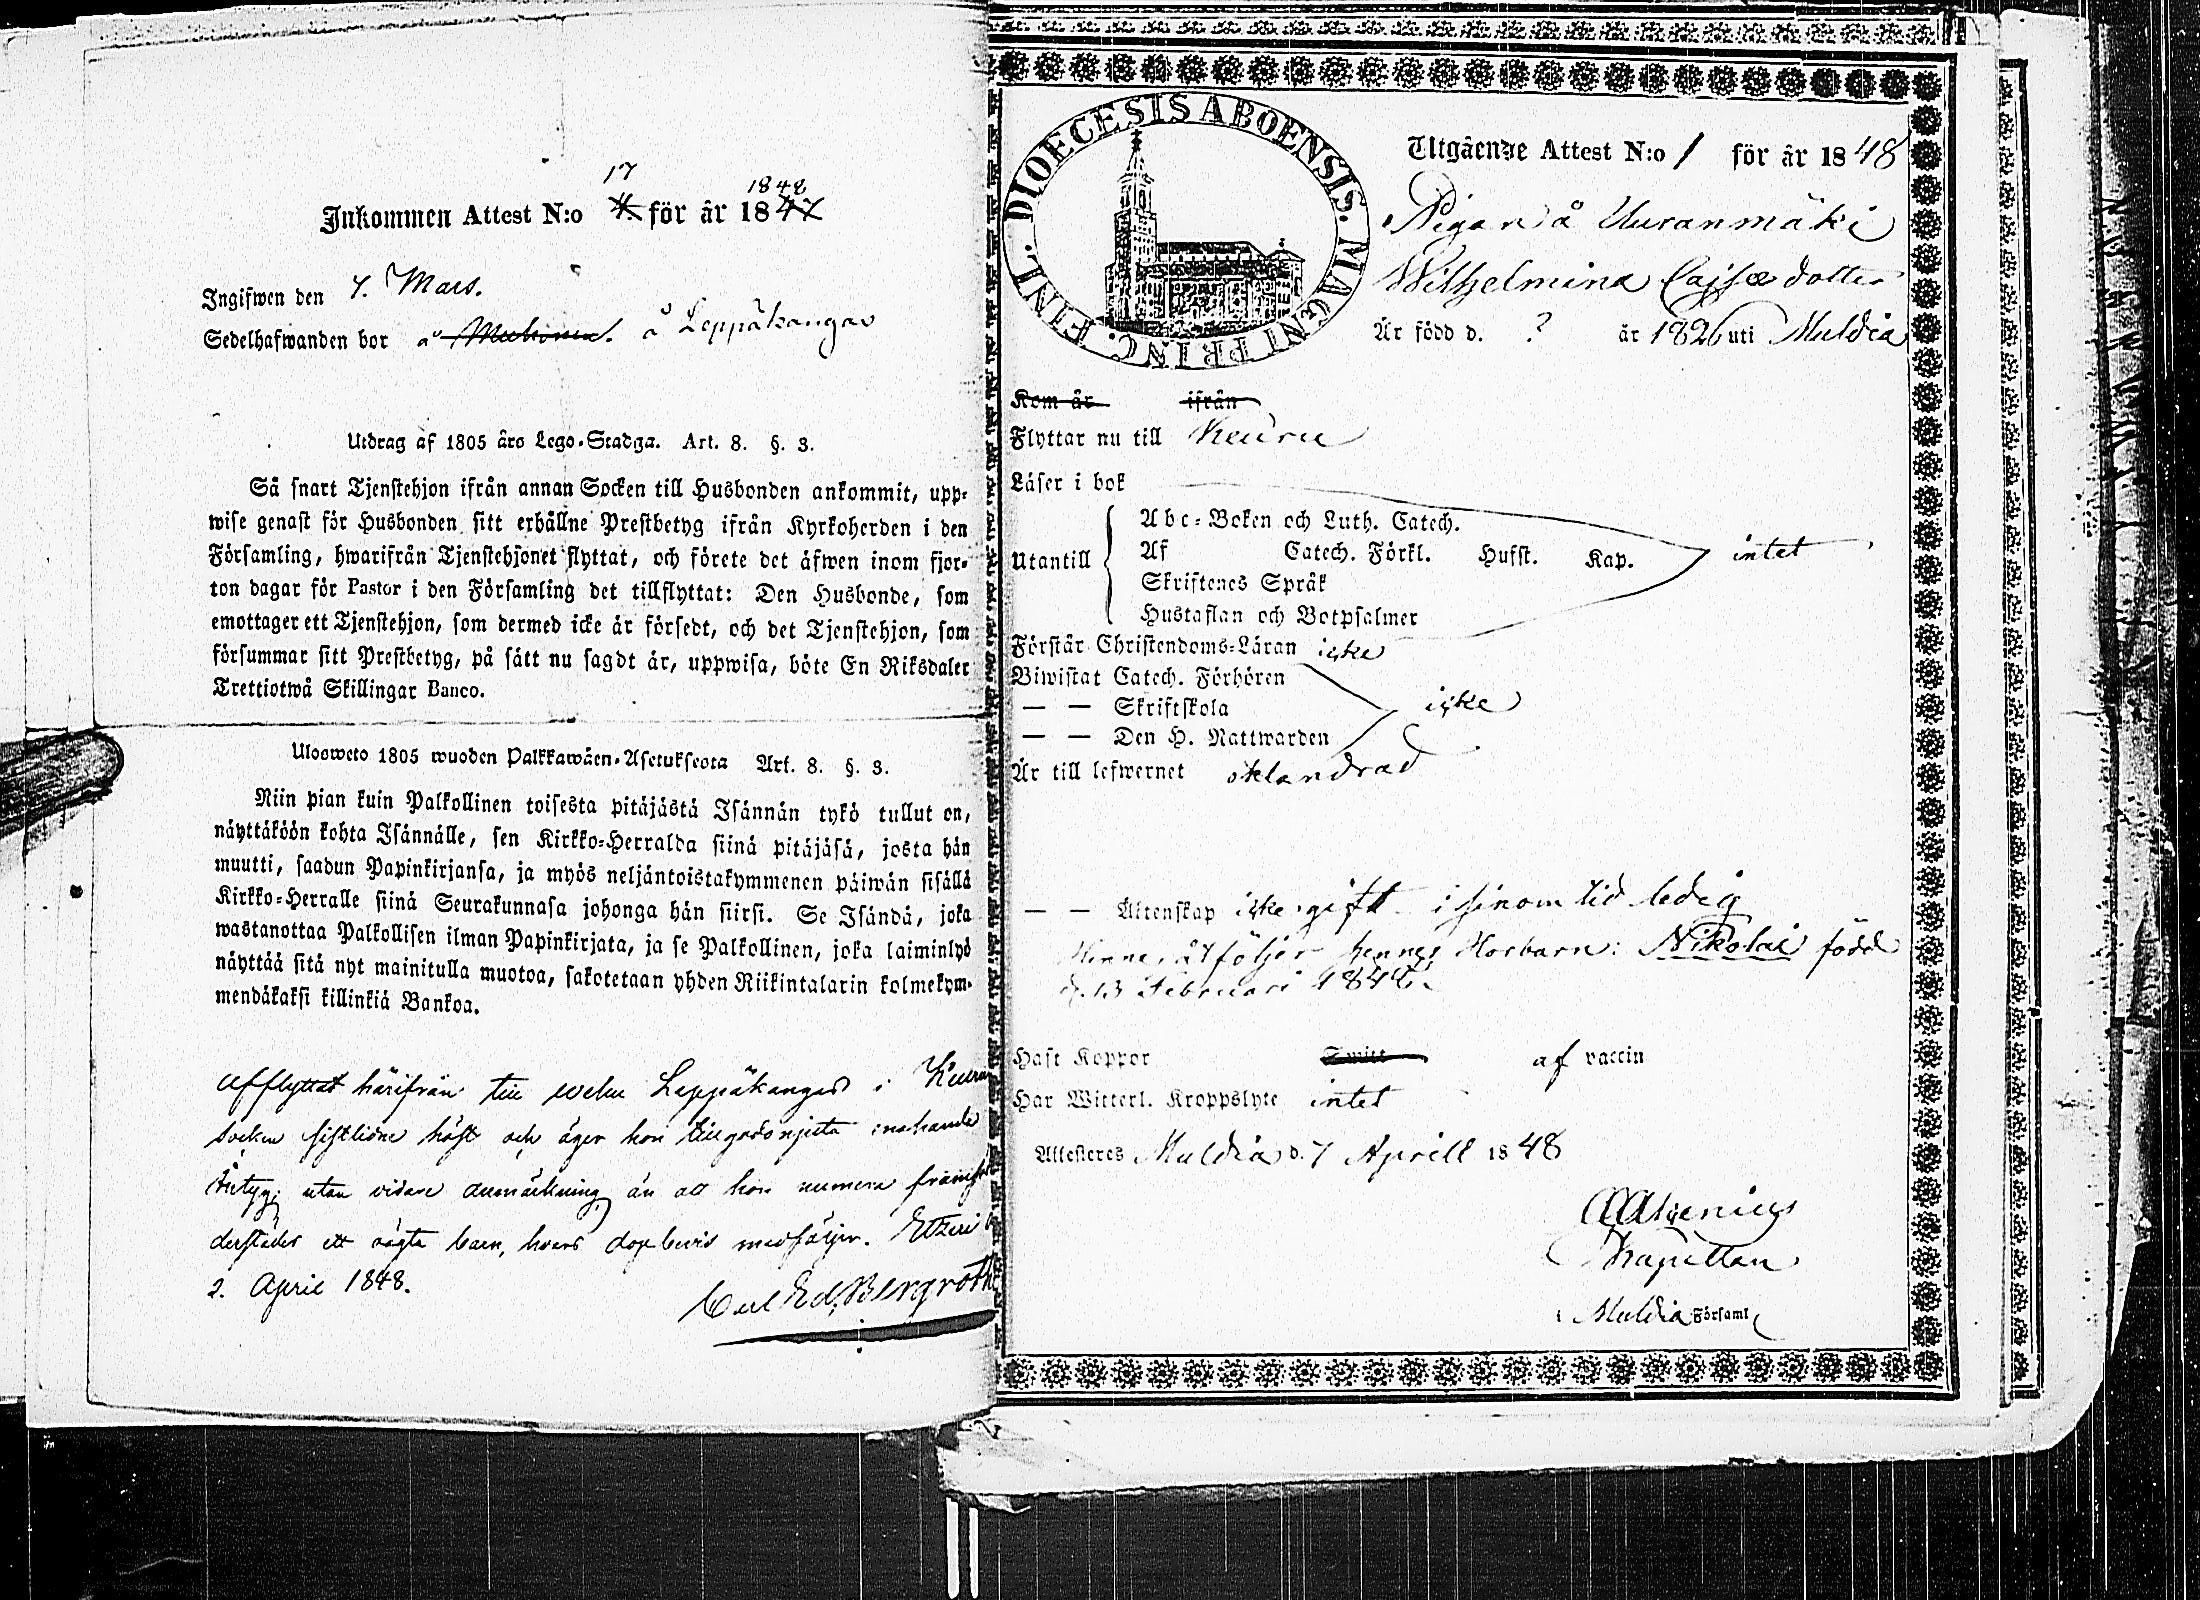 Inkommen Attest N:o 4 17 för år 1847 1848
Ingifwen den 7. Mars.
Sedelhafwanden bor å å Leppäkangas
Utdrag af 1805 års Lego-Stadga. Art. 8. §. 3.
Så snart Tjenstehjon ifrån annan Socken till Husbonden ankommit, upp-
wise genast för Husbonden sitt erhållne Prestbetyg ifrån Kyrkoherden i den
Församling, hwarifrån Tjenstehjonet flyttat, och förete det äfwen inom fjor-
ton dagar för Pastor i den Församling det tillflyttat: Den Husbonde, som
emottager ett Tjenstehjon, som dermed icke är försedt, och det Tjenstehjon, som
försummar sitt Prestbetyg, på sätt nu sagdt är, uppwisa, böte En Riksdaler
Trettiotwå Skillingar Banco.
Ulosweto 1805 wuoden Palkkawäen-Asetuksesta Art. 8. §. 3.
Niin pian kuin Palkollinen toisesta pitäjästä Isännän tykö tullut on,
näyttäköön kohta Isännälle, sen Kirkko-Herralda siinä pitäjäsä, josta hän
muutti, saadun Papinkirjansa, ja myös neljäntoistakymmenen päiwän sisällä
Kirkko-Herralle siinä Seurakunnasa johonga hän siirsi. Se Isändä, joka
wastanottaa Palkollisen ilman Papinkirjata, ja se Palkollinen, joka laiminlyö
näyttää sitä nyt mainitulla muotoa, sakotetaan yhden Riikintalarin kolmekym-
mendäkaksi killinkiä Bankoa.
Afflyttat härifrån till Leppäkangas i Keuru
socken sistlidne höst och äger hon tillgodonjuta
utan vidare anmärkning, än att hon numera
derstädes ett oägta barn, hvars dopbevis medföljer. Etseri
2. April 1848.
Carl Ed. Bergroth
DIOECESIS ABOENSIS. MAGNI PRINC. FINL.
Utgående Attest N:o 1 för år 1848
Pigan å Uuranmäki
Wilhelmina Cajsædotter
Är född d. ? år 1826 uti Muldia
Kom år ifrån
Flyttar nu till Keuru
Läser i bok
Utantill
Abc-Boken och Luth. Catech.
Af Catech. Förkl. Husst. Kap. intet
Skriftenes Språk
Hustaflan och Botpsalmer
Förstår Christendoms-Läran icke
Biwistat Catech. Förhören
— — Skriftskola icke
— — Den H. Nattwarden
Är till lefwernet oklandrad
— — Äktenskap icke gift i sinom tid ledig
Henne åtföljer hennes Horbarn: Nikolai född
d. 13 Februari 1848.
Haft Koppor af vaccin
Har Witterl. Kroppslyte intet
Attesteres Muldia d. 7 Aprill 1848
Kapellan
i Muldia Församl.